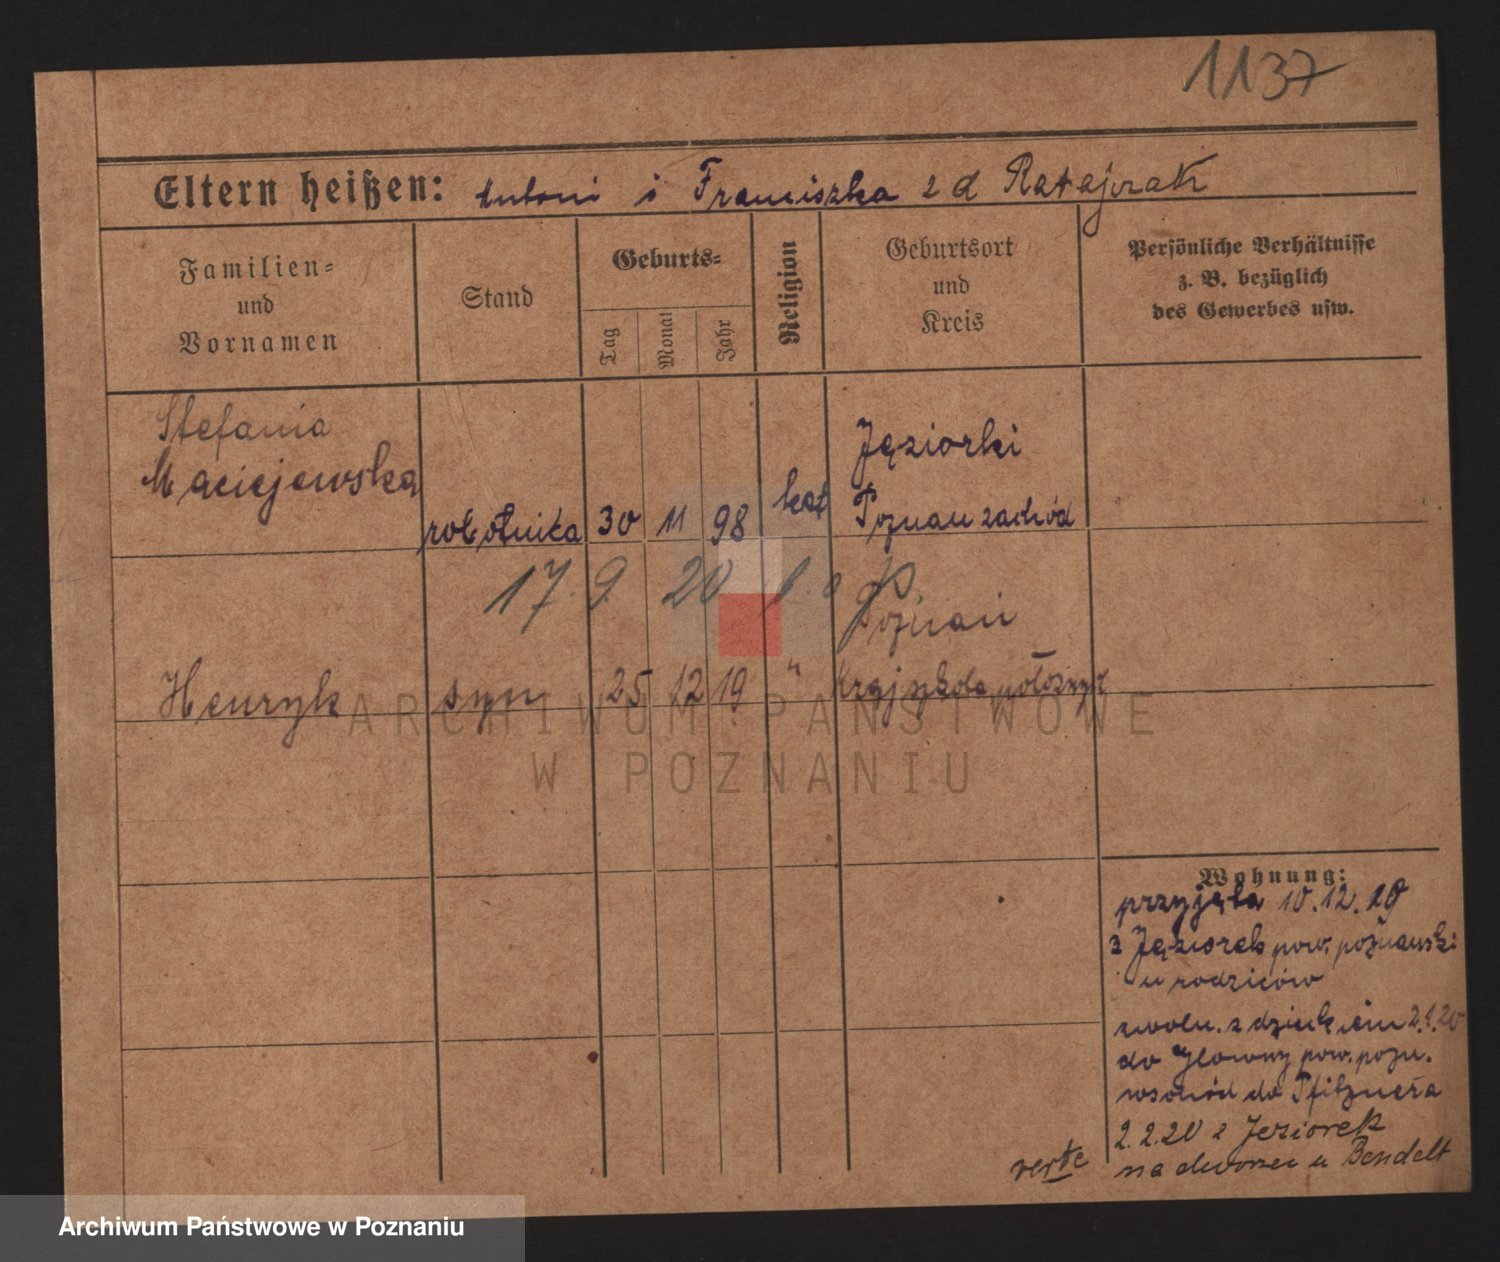 1137
Eltern heißen: Antoni i Franciszka z d Ratajczak
Familien=
und
Vornamen
Stand
Geburts=
Tag
Monat
Jahr
Religion
Geburtsort
und
Kreis
Persönliche Verhältnisse
z. B. bezüglich
des Gewerbes usw.
Stefania
Maciejewska
robotnica 30 11 98 kat
Jęziorki
Poznań zachód
17. 9. 20
Poznań
Henryk syn 25 12 19 "
Kraj szkoła położnych
ARCHIWUM PAŃSTWOWE
W POZNANIU
Wohnung:
przyjęta 10.12.19
z Jęziorek pow. poznański
u rodziców
zwoln. z dzieckiem 2.1.20
do pow. pozn.
wschód do Pfitznera
2.2.20 z Jeziorek
na dworzec u Bendelt
verte
Archiwum Państwowe w Poznaniu